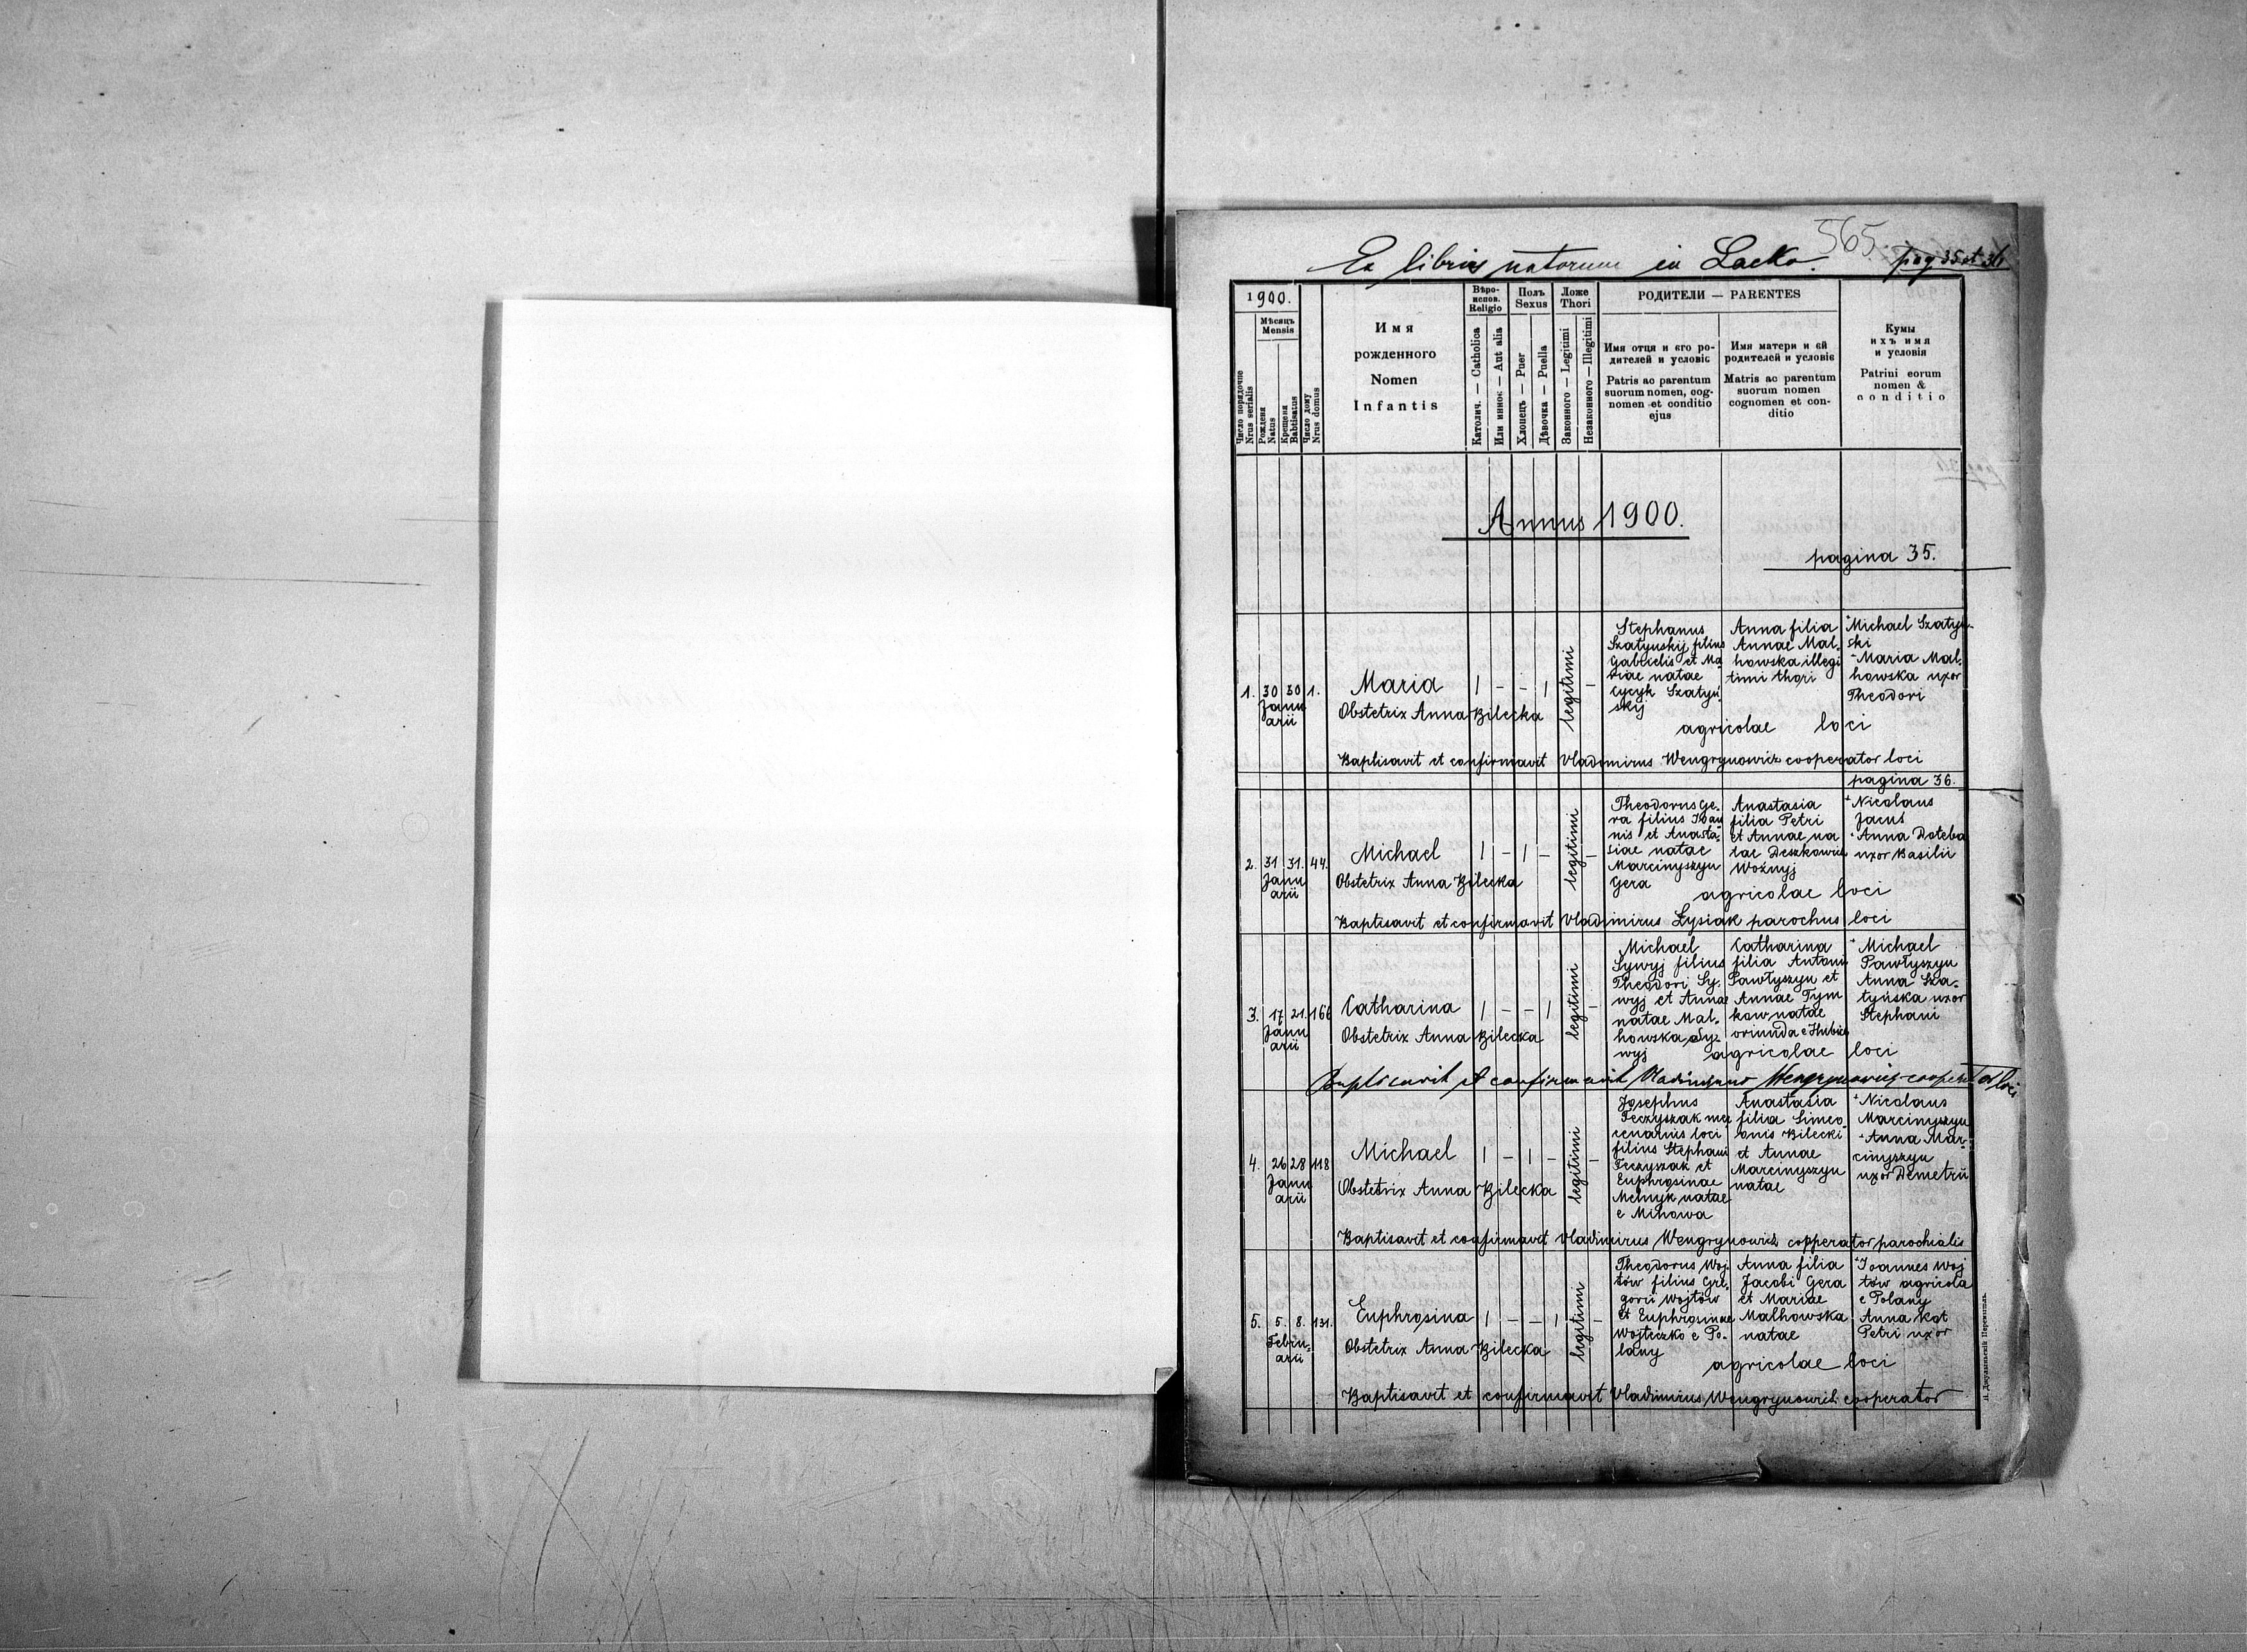 565.
Ex libris natorum in Lacko. pag 35 et 36
1900.
Мѣсяць
Mensis
Число порядочне
Nrus serialis
Рожденя
Natus
Крещеня
Babtisatus
Число дому
Nrus domus
Имя
рожденного
Nomen
Infantis
Вѣро-
испов.
Religio
Католич. — Catholica
Или иннос — Aut alia
Полъ
Sexus
Хлопець — Puer
Дѣвочка — Puella
Ложе
Thori
Законного — Legitimi
Незаконного — Illegitimi
РОДИТЕЛИ — PARENTES
Имя отця и єго ро-
дителей и условіє
Patris ac parentum
suorum nomen, cog-
nomen et conditio
ejus
Имя матери и єй
родителей и условіє
Matris ac parentum
suorum nomen
cognomen et con-
ditio
Кумы
ихъ имя
и условія
Patrini eorum
nomen &
conditio
Annus 1900.
pagina 35.
1. 30 30 1.
Janu
arii
Maria
Obstetrix Anna Bilecka
| - - |
legitimi
-
Stephanus
Szatynskij filius
Gabrielis et Ma
riae natae
Cycyk Szatyń
skij
Anna filia
Annae Mal-
howska illegi
timi thori
Michael Szatyn-
ski
Maria Mal-
howska uxor
Theodori
agricolae loci
Baptisavit et confirmavit Vladimirus Wengrynowicz cooperator loci
pagina 36.
2. 31. 31. 44.
Janu
arii
Michael
Obstetrix Anna Bilecka
| - | -
legitimi
-
Theodorus Ge-
ra filius Ioan
nis et Anasta-
siae natae
Marcinyszyn
Gera
Anastasia
filia Petri
et Annae na
tae Deszkowicz
Woźnyj
Nicolaus
Jacus
Anna Doteba
uxor Basilii
agricolae loci
Baptisavit et confirmavit Vladimirus Łysiak parochus loci
3. 17 21. 166
Janu
arii
Catharina
Obstetrix Anna Bilecka
| - - |
legitimi
-
Michael
Sywyj filius
Theodori Sy-
wyj et Annae
natae Mal-
howska Sy-
wyj
Catharina
filia Antoni
Pawłyszyn et
Annae Tym
kow natae
oriunda e Hubice
Michael
Pawłyszyn
Anna Sza-
tyńska uxor
Stephani
agricolae loci
Baptisavit et confirmavit Vladimirus Wengrynowicz cooperator loci
4. 26 28 118
Janu
arii
Michael
Obstetrix Anna Bilecka
| - | -
legitimi
-
Josephus
Feczyszak mer
cenarius loci
filius Stephani
Feczyszak et
Euphrosinae
Melnyk natae
e Mihowa
Anastasia
filia Simeo-
onis Bilecki
et Annae
Marcinyszyn
natae
Nicolaus
Marcinyszyn
Anna Mar-
cinyszyn
uxor Demetrii
Baptisavit et confirmavit Vladimirus Wengrynowicz copperator parochialis
5. 5. 8. 131.
Febru-
arii
Euphrosina
Obstetrix Anna Bilecka
| - - |
legitimi
-
Theodorus Woj-
tów filius Gre-
gorii Wojtów
et Euphrosinae
Wojteczko e Po-
lany
Anna filia
Jacobi Gera
et Mariae
Malhowska
natae
Ioannes Woj
tów agricola
e Polany
Anna Kot
Petri uxor
agricolae loci
Baptisavit et confirmavit Vladimirus Wengrynowicz cooperator